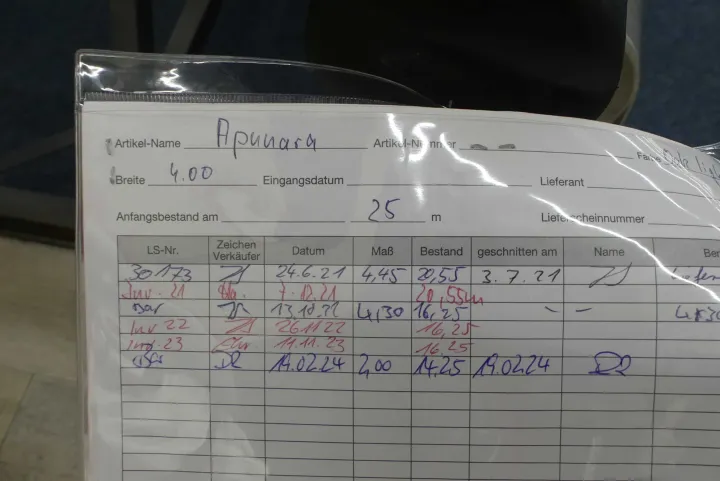 Artikel-Name Apunara Artikel-Nummer
Breite 4.00 Eingangsdatum Lieferant
Anfangsbestand am 25 m Lieferscheinnummer
LS-Nr. Zeichen Verkäufer Datum Maß Bestand geschnitten am Name
30173 24.6.21 4,45 20,55 3.7.21
Inv. 21 7.12.21 20,55m
Bar 4,30 16,25 - -
Inv 22 26.11.22 16,25
Inv. 23 11.11.23 16.25
Bar 19.02.24 2,00 14,25 19.02.24